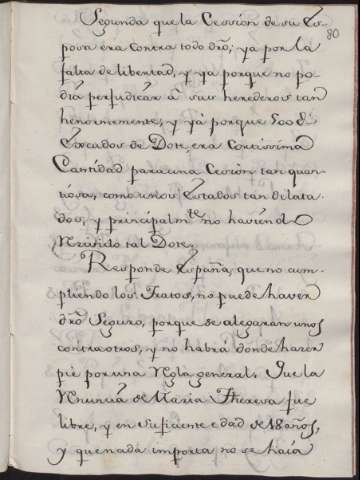 80
Segunda que la Cession de su Es-
posa era contra todo dro; ya por la
falta de libertad, y ya porque no po-
dia perjudicar â sus herederos tan
henormemente, y ya porque 500 đ
Escudos de Dote, era Cortissima
Cantidad para una Cesion tan quan-
tiosa, como unos Estados tan dilata-
dos, y principalmte no haviendo
Recivido tal Dote.
Responde España, que no cum-
pliendo los Tratos, no puede haver
dro Seguro, porque se alegaran unos
contra otros, y no habrá donde hacer
pie por una Regla general. Que la
Renuncia de Maria Theresa fue
libre, y en suficiente edad de 18 años,
y que nada importa no se hacia